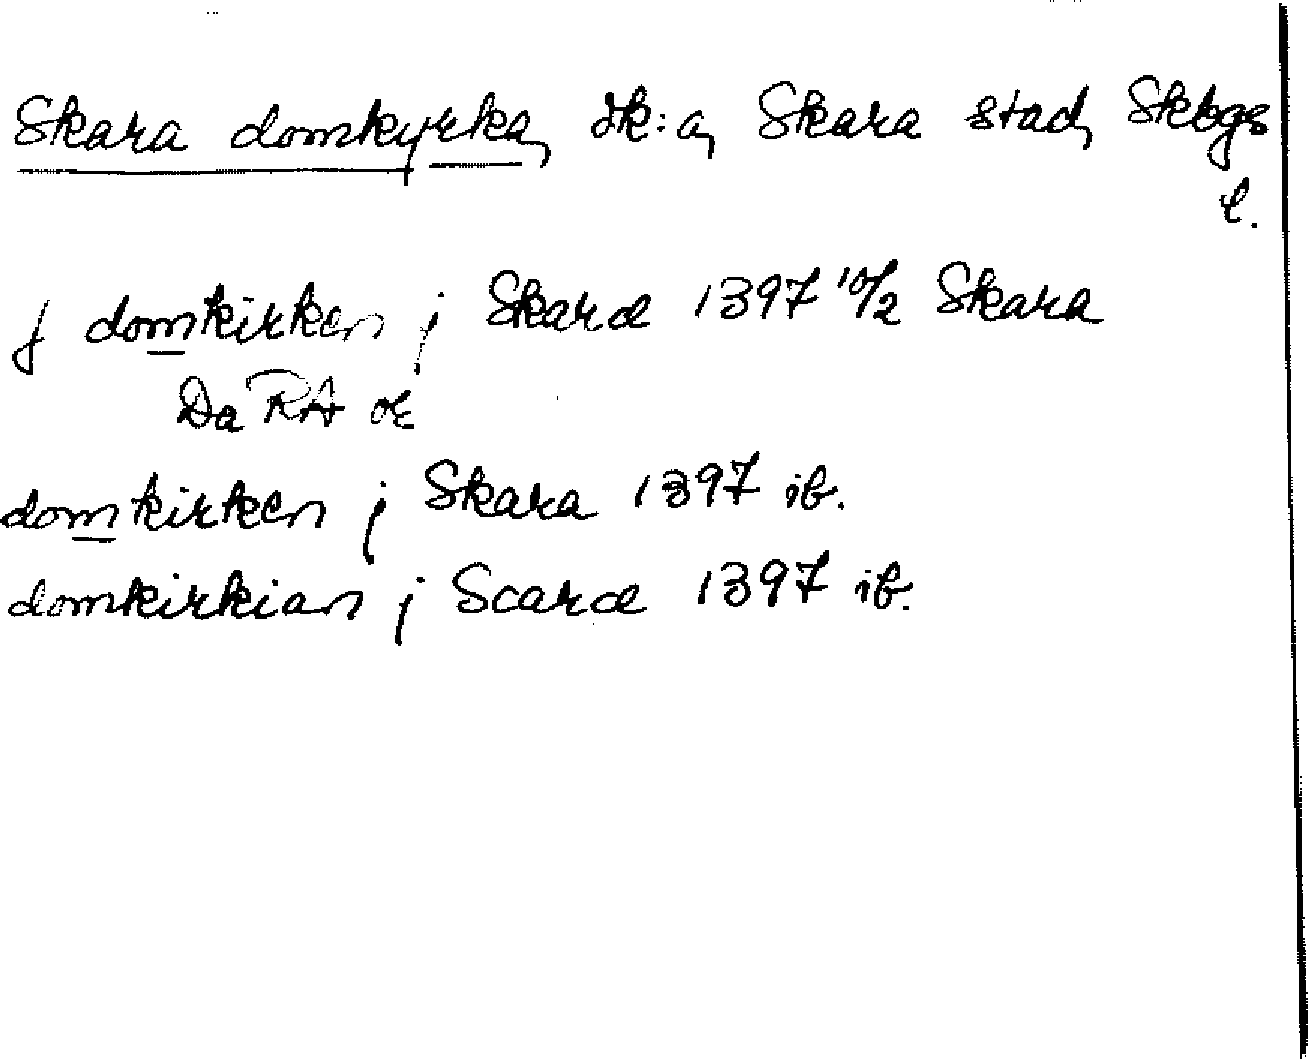 Skara domkyrka, dk:a, Skara stad, Skbgs
l.
j domkirken j Skaræ 1397 10/2 Skara
Da RA or
domkirken j Skara 1397 ib.
domkirkian j Scaræ 1397 ib.